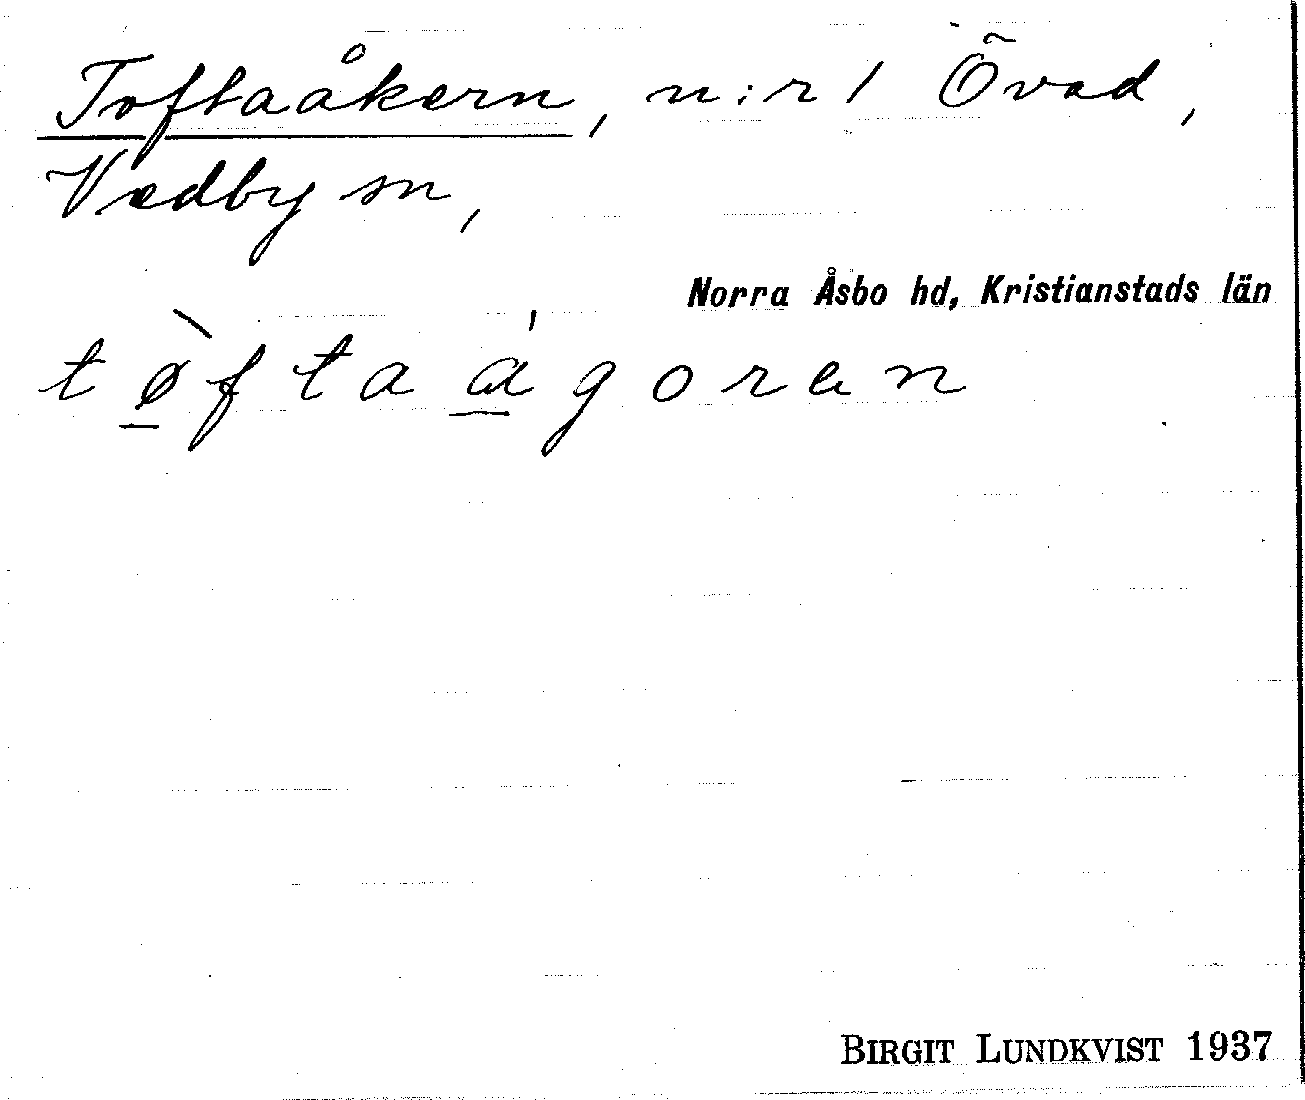 Toftaåkern, n:r 1 Övad,
Vedby sn,
Norra Åsbo hd, Kristianstads län
tø̀fta ágoren
BIRGIT LUNDKVIST 1937